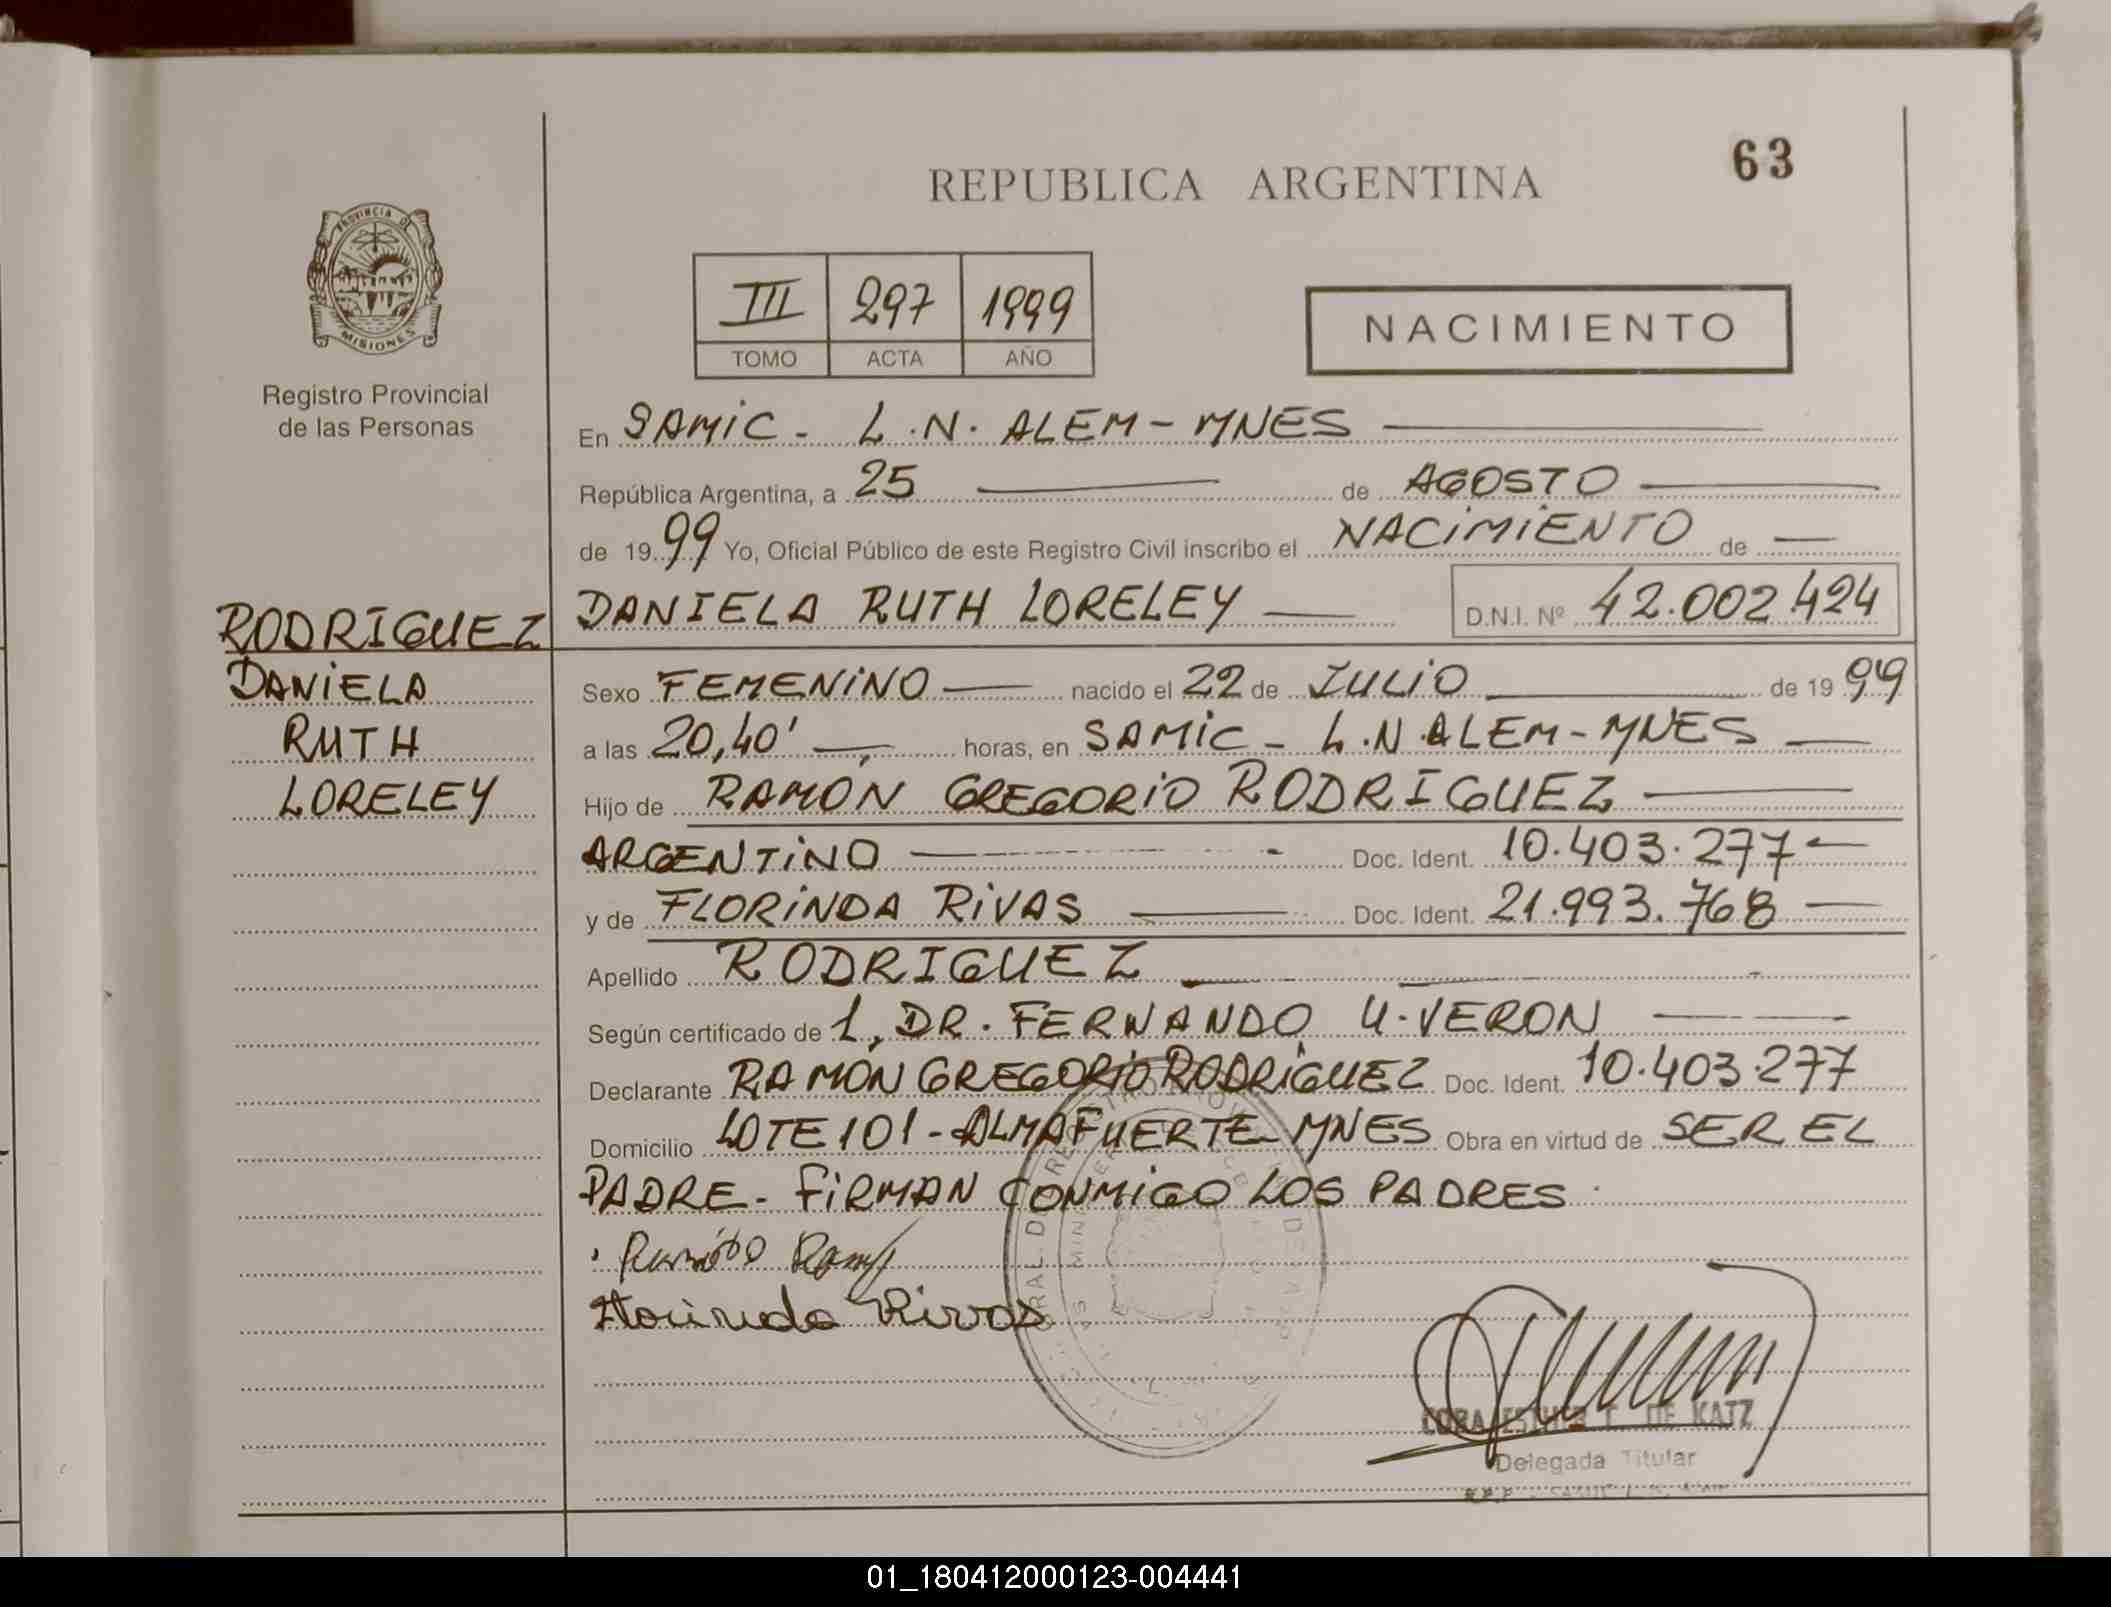 63
REPUBLICA ARGENTINA
PROVINCIA DE
MISIONES
III 297 1999
TOMO ACTA AÑO
NACIMIENTO
Registro Provincial
de las Personas
En SAMIC - L.N. ALEM - MNES
República Argentina, a 25 de AGOSTO
de 1999 Yo, Oficial Público de este Registro Civil inscribo el NACIMIENTO de
DANIELA RUTH LORELEY D.N.I. Nº 42.002.424
RODRIGUEZ
DANIELA
RUTH
LORELEY
Sexo FEMENINO nacido el 22 de JULIO de 1999
a las 20,40' horas, en SAMIC - L.N. ALEM - MNES
Hijo de RAMON GREGORIO RODRIGUEZ
ARGENTINO Doc. Ident. 10.403.277
y de FLORINDA RIVAS Doc. Ident. 21.993.768
Apellido RODRIGUEZ
Según certificado de 1, DR. FERNANDO U. VERON
Declarante RAMON GREGORIO RODRIGUEZ Doc. Ident. 10.403.277
Domicilio LOTE 101 - ALMAFUERTE - MNES Obra en virtud de SER EL
PADRE - FIRMAN CONMIGO LOS PADRES
Florinda Rivas
DE KATZ
Delegada Titular
01_180412000123-004441